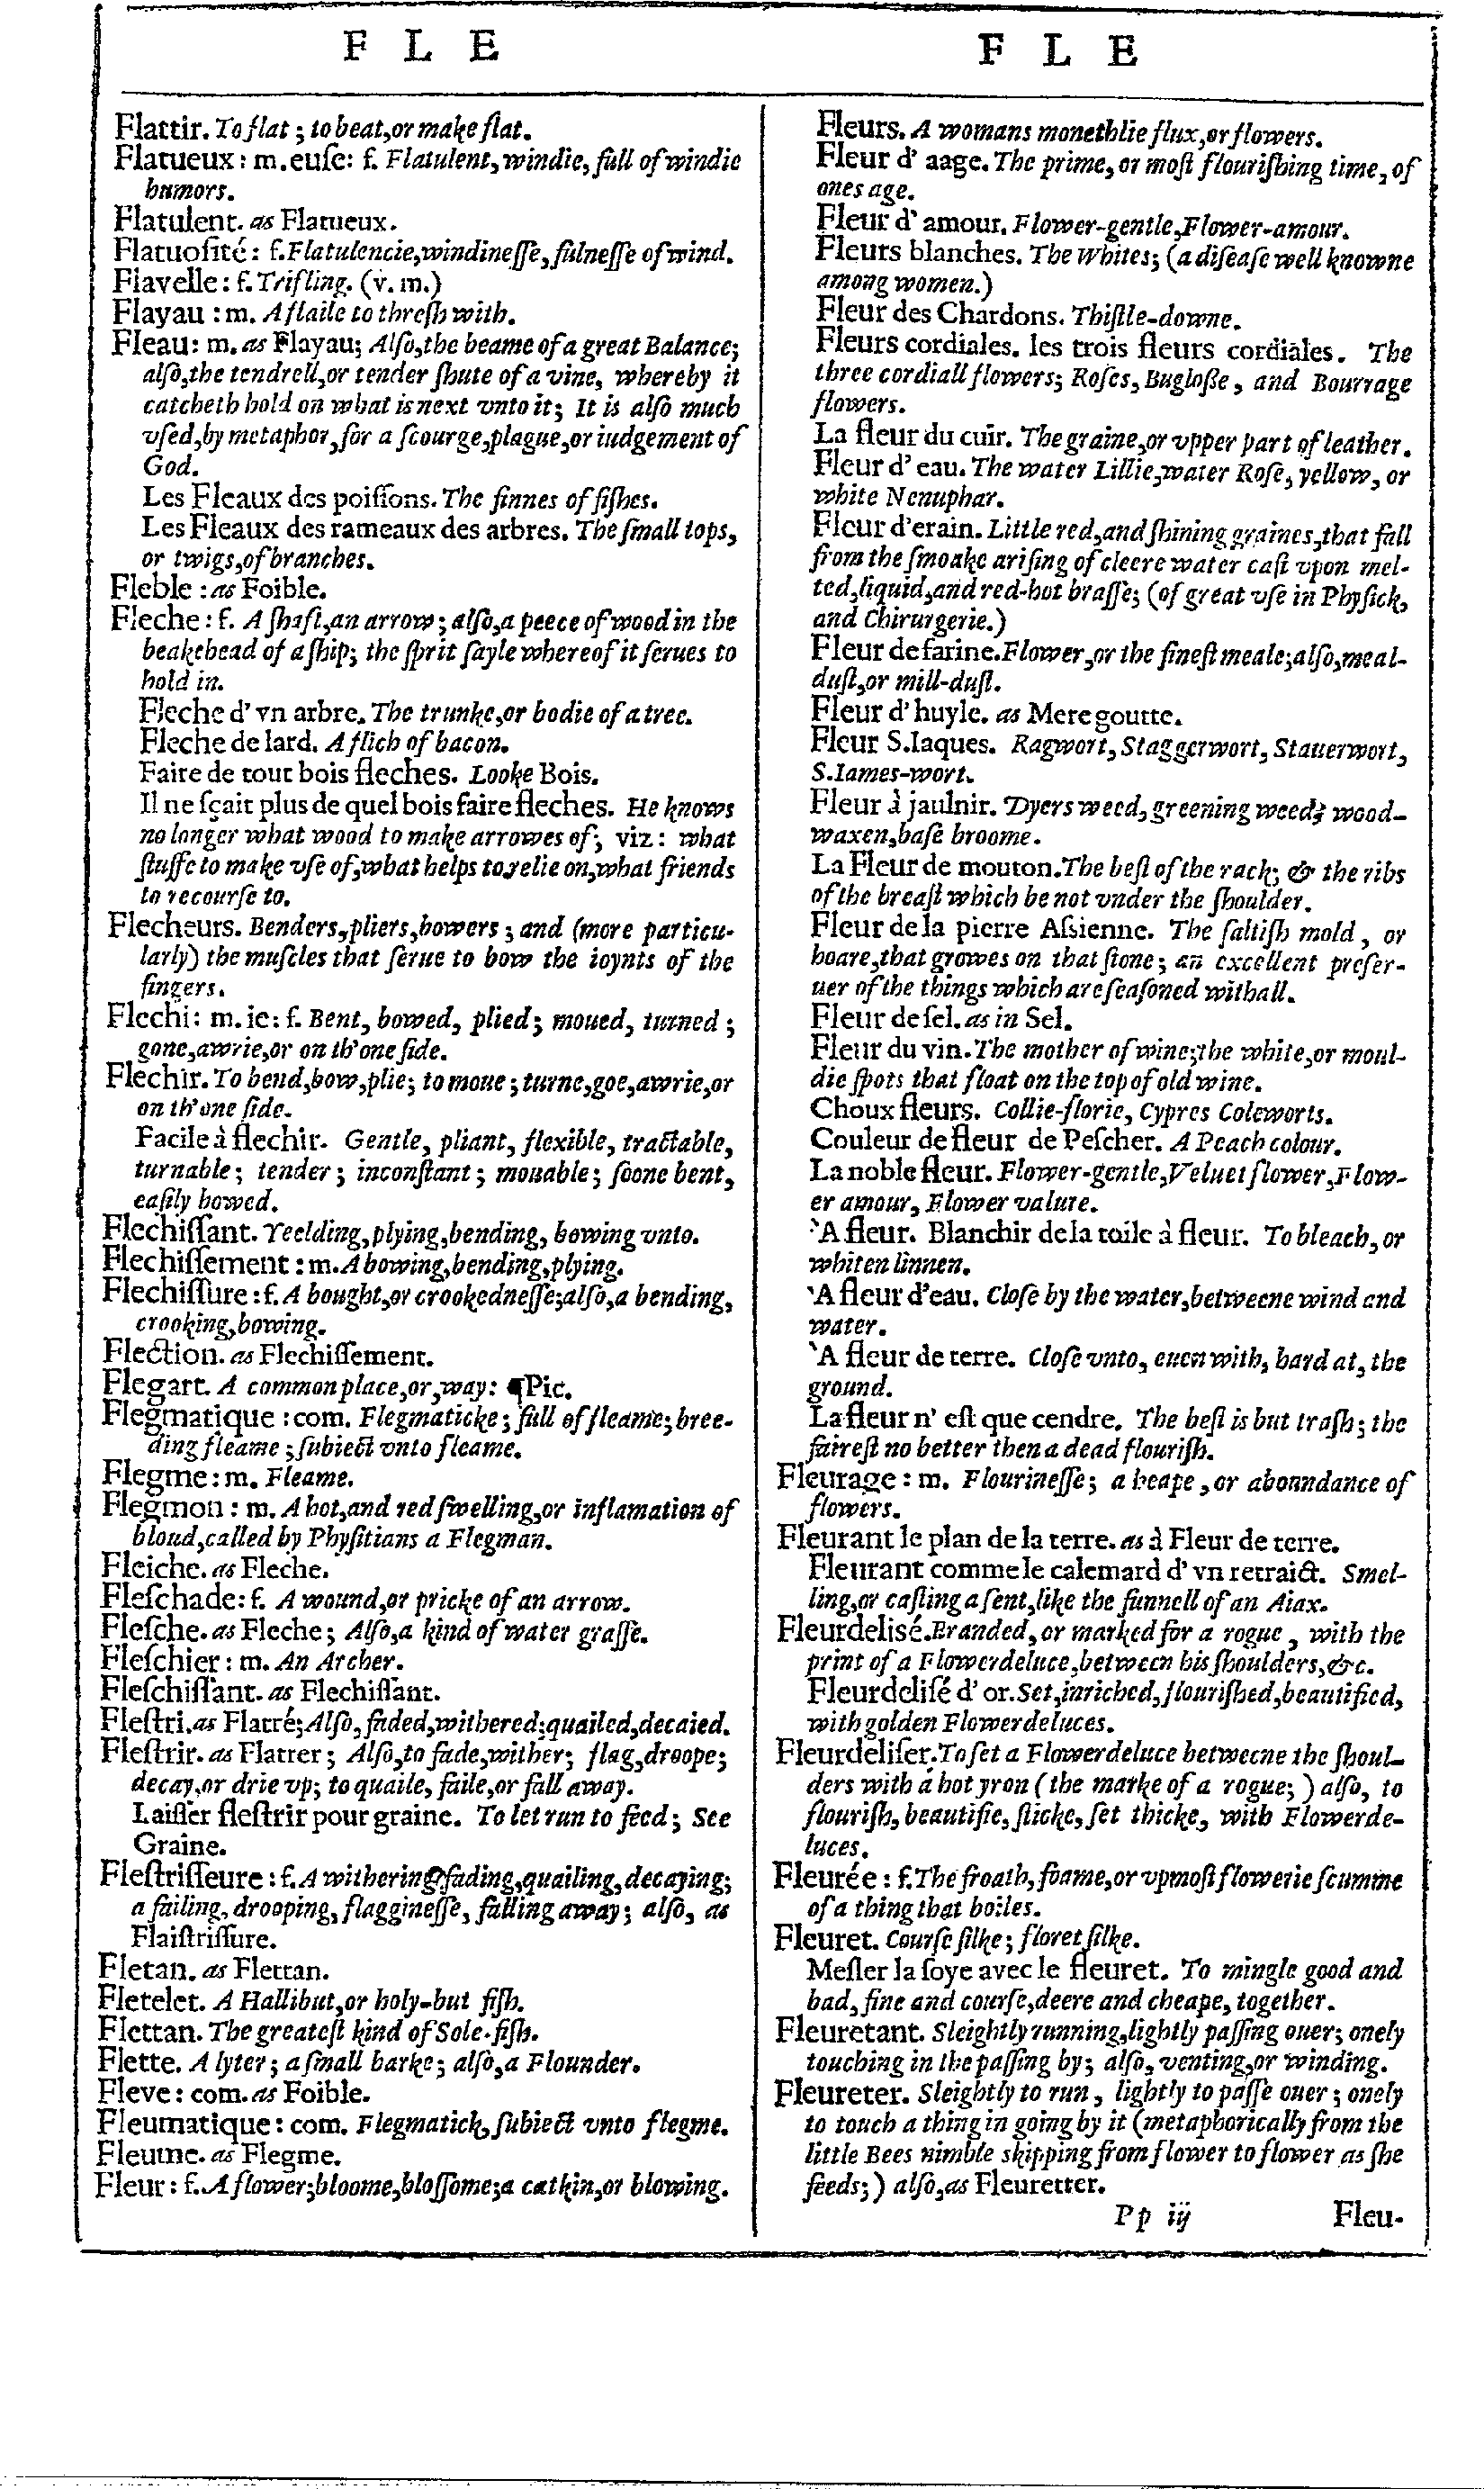 F L E
Flattir. To flat ; to beat, or make flat.
Flatueux : m. euſe: f. Flatulent, windie, full of windie
humors.
Flatulent. as Flatueux.
Flatuoſité : f. Flatulencie, windineſſe, fulneſſe of wind.
Flavelle : f. Trifling. (v. m.)
Flayau : m. A flaile to threſh with.
Fleau: m. as Flayau; Alſo, the beame of a great Balance;
alſo, the tendrell, or tender ſhute of a vine, whereby it
catcheth hold on what is next vnto it; It is alſo much
vſed, by metaphor, for a ſcourge, plague, or iudgement of
God.
Les Fleaux des poiſſons. The finnes of fiſhes.
Les Fleaux des rameaux des arbres. The ſmall tops,
or twigs, of branches.
Fleble : as Foible.
Fleche : f. A ſhaft, an arrow ; alſo, a peece of wood in the
beakehead of a ſhip; the ſprit ſayle whereof it ſerues to
hold in.
Fleche d' vn arbre. The trunke, or bodie of a tree.
Fleche de lard. A flich of bacon.
Faire de tout bois fleches. Looke Bois.
Il ne ſçait plus de quel bois faire fleches. He knows
no longer what wood to make arrowes of; viz: what
ſtuffe to make vſe of, what helps to relie on, what friends
to recourſe to.
Flecheurs. Benders, pliers, bowers ; and (more particu-
larly) the muſcles that ſerue to bow the ioynts of the
fingers.
Flechi: m. ie: f. Bent, bowed, plied; moued, turned ;
gone, awrie, or on th' one ſide.
Flechir. To bend, bow, plie; to moue ; turne, goe, awrie, or
on th' one ſide.
Facile à flechir. Gentle, pliant, flexible, tractable,
turnable ; tender ; inconſtant ; mouable ; ſoone bent,
eaſily bowed.
Flechiſſant. Yeelding, plying, bending, bowing vnto.
Flechiſſement : m. A bowing, bending, plying.
Flechiſſure : f. A bought, or crookedneſſe; alſo, a bending,
crooking, bowing.
Flection. as Flechiſſement.
Flegart. A common place, or, way: ¶Pic.
Flegmatique : com. Flegmaticke ; full of fleame; bree-
ding fleame ; ſubiect vnto fleame.
Flegme : m. Fleame.
Flegmon : m. A hot, and red ſwelling, or inflamation of
bloud, called by Phyſitians a Flegman.
Fleiche. as Fleche.
Fleſchade: f. A wound, or pricke of an arrow.
Fleſche. as Fleche ; Alſo, a kind of water graſſe.
Fleſchier : m. An Archer.
Fleſchiſſant. as Flechiſſant.
Fleſtri. as Flatré; Alſo, faded, withered; quailed, decaied.
Fleſtrir. as Flatrer ; Alſo, to fade, wither; flag, droope;
decay, or drie vp; to quaile, faile, or fall away.
Laiſſer fleſtrir pour graine. To let run to ſeed; See
Graine.
Fleſtriſſeure : f. A withering, fading, quailing, decaying;
a failing, drooping, flaggineſſe, falling away; alſo, as
Flaiſtriſſure.
Fletan. as Flettan.
Fletelet. A Hallibut, or holy-but fiſh.
Flettan. The greateſt kind of Sole-fiſh.
Flette. A lyter ; a ſmall barke; alſo, a Flounder.
Fleve : com. as Foible.
Fleumatique : com. Flegmatick, ſubiect vnto flegme.
Fleume. as Flegme.
Fleur : f. A flower; bloome, bloſſome; a catkin, or blowing.
F L E
Fleurs. A womans monethlie flux, or flowers.
Fleur d' aage. The prime, or moſt flouriſhing time, of
ones age.
Fleur d' amour. Flower-gentle, Flower-amour.
Fleurs blanches. The Whites; (a diſeaſe well knowne
among women.)
Fleur des Chardons. Thiſtle-downe.
Fleurs cordiales. les trois fleurs cordiales. The
three cordiall flowers; Roſes, Bugloße, and Bourrage
flowers.
La fleur du cuir. The graine, or vpper part of leather.
Fleur d' eau. The water Lillie, water Roſe, yellow, or
white Nenuphar.
Fleur d'erain. Little red, and ſhining graines, that fall
from the ſmoake ariſing of cleere water caſt vpon mel-
ted, liquid, and red-hot braſſe; (of great vſe in Phyſick,
and Chirurgerie.)
Fleur de farine. Flower, or the fineſt meale; alſo, meal-
duſt, or mill-duſt.
Fleur d' huyle. as Mere goutte.
Fleur S. Iaques. Ragwort, Staggerwort, Stauerwort,
S. Iames-wort.
Fleur à jaulnir. Dyers weed, greening weed; wood-
waxen, baſe broome.
La Fleur de mouton. The beſt of the rack; & the ribs
of the breaſt which be not vnder the ſhoulder.
Fleur de la pierre Aſsienne. The ſaltiſh mold, or
hoare, that growes on that ſtone ; an excellent preſer-
uer of the things which are ſeaſoned withall.
Fleur de ſel. as in Sel.
Fleur du vin. The mother of wine; the white, or moul-
die ſpots that float on the top of old wine.
Choux fleurs. Collie-florie, Cypres Coleworts.
Couleur de fleur de Peſcher. A Peach colour.
La noble fleur. Flower-gentle, Veluet flower, Flow-
er amour, Flower valure.
`A fleur. Blanchir de la toile à fleur. To bleach, or
whiten linnen.
`A fleur d'eau. Cloſe by the water, betweene wind and
water.
`A fleur de terre. Cloſe vnto, euen with, hard at, the
ground.
La fleur n' eſt que cendre. The beſt is but traſh; the
faireſt no better then a dead flouriſh.
Fleurage : m. Flourineſſe; a heape, or aboundance of
flowers.
Fleurant le plan de la terre. as à Fleur de terre.
Fleurant comme le calemard d' vn retraict. Smel-
ling, or caſting a ſent, like the funnell of an Aiax.
Fleurdelisé. Branded, or marked for a rogue, with the
print of a Flowerdeluce, between his ſhoulders, &c.
Fleurdeliſé d' or. Set, inriched, flouriſhed, beautified,
with golden Flowerdeluces.
Fleurdeliſer. To ſet a Flowerdeluce betweene the ſhoul-
ders with a hot yron (the marke of a rogue; ) alſo, to
flouriſh, beautifie, ſticke, ſet thicke, with Flowerde-
luces.
Fleurée : f. The froath, foame, or vpmoſt flowerie ſcumme
of a thing that boiles.
Fleuret. Courſe ſilke ; floret ſilke.
Meſler la ſoye avec le fleuret. To mingle good and
bad, fine and courſe, deere and cheape, together.
Fleuretant. Sleightly running, lightly paſſing ouer; onely
touching in the paſſing by; alſo, venting, or winding.
Fleureter. Sleightly to run, lightly to paſſe ouer ; onely
to touch a thing in going by it (metaphorically from the
little Bees nimble skipping from flower to flower as ſhe
feeds;) alſo, as Fleuretter.
Pp iij
Fleu-